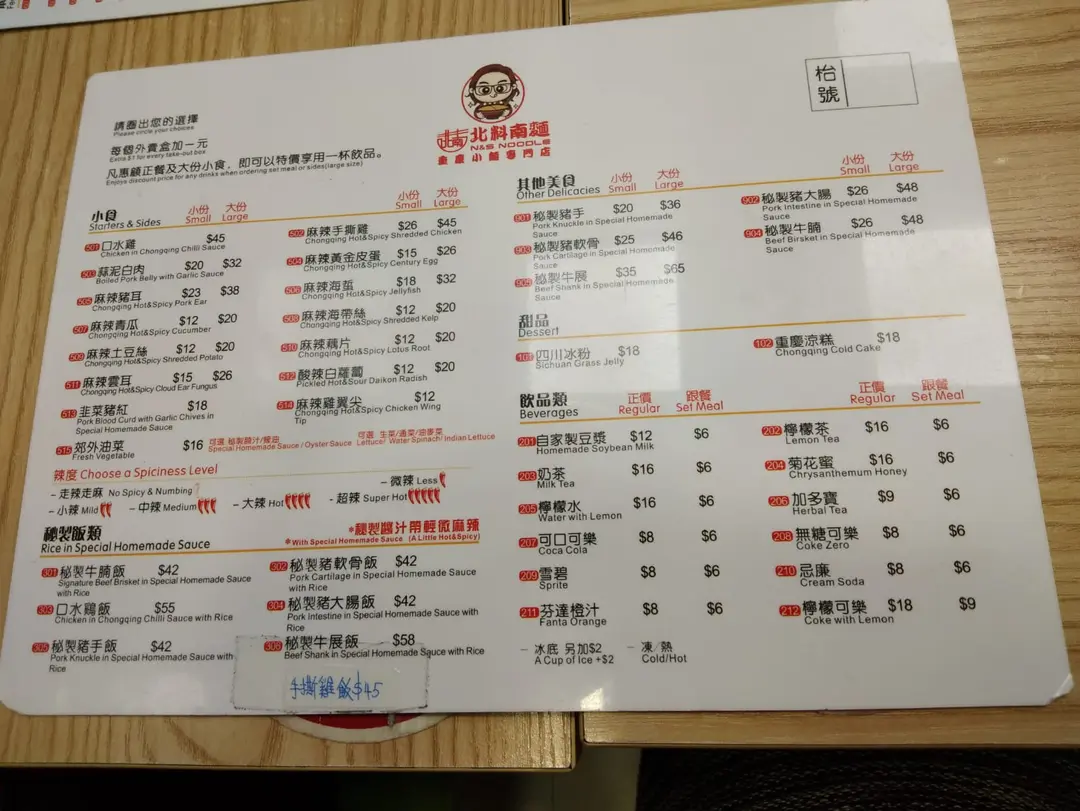 請圈出您的選擇
Please circle your choices
每個外賣盒加一元
Extra $1 for every take-out box
凡惠顧正餐及大份小食，即可以特價享用一杯飲品。
Enjoys discount price for any drinks when ordering set meal or sides(large size)
北料南麵
N&S NOODLE
重慶小麵專門店
枱號
小食 小份 大份 小份 大份
Starters & Sides Small Large Small Large
501 口水雞 $45
Chicken in Chongqing Chilli Sauce
503 蒜泥白肉 $20 $32
Boiled Pork Belly with Garlic Sauce
505 麻辣豬耳 $23 $38
Chongqing Hot&Spicy Pork Ear
507 麻辣青瓜 $12 $20
Chongqing Hot&Spicy Cucumber
509 麻辣土豆絲 $12 $20
Chongqing Hot&Spicy Shredded Potato
511 麻辣雲耳 $15 $26
Chongqing Hot&Spicy Cloud Ear Fungus
513 韭菜豬紅 $18
Pork Blood Curd with Garlic Chives in
Special Homemade Sauce
515 郊外油菜 $16 可選 秘製醬汁/蠔油 可選 生菜/通菜/油麥菜
Fresh Vegetable Special Homemade Sauce / Oyster Sauce Lettuce/ Water Spinach/ Indian Lettuce
502 麻辣手撕雞 $26 $45
Chongqing Hot&Spicy Shredded Chicken
504 麻辣黃金皮蛋 $15 $26
Chongqing Hot&Spicy Century Egg
506 麻辣海蜇 $18 $32
Chongqing Hot&Spicy Jellyfish
508 麻辣海帶絲 $12 $20
Chongqing Hot&Spicy Shredded Kelp
510 麻辣藕片 $12 $20
Chongqing Hot&Spicy Lotus Root
512 酸辣白蘿蔔 $12 $20
Pickled Hot&Sour Daikon Radish
514 麻辣雞翼尖 $12
Chongqing Hot&Spicy Chicken Wing
Tip
辣度 Choose a Spiciness Level
– 走辣走麻 No Spicy & Numbing – 微辣 Less
– 小辣 Mild – 中辣 Medium – 大辣 Hot – 超辣 Super Hot
秘製飯類 *秘製醬汁帶輕微麻辣
Rice in Special Homemade Sauce *With Special Homemade Sauce (A Little Hot&Spicy)
301 秘製牛腩飯 $42
Signature Beef Brisket in Special Homemade Sauce
with Rice
303 口水鷄飯 $55
Chicken in Chongqing Chilli Sauce with Rice
305 秘製豬手飯 $42
Pork Knuckle in Special Homemade Sauce with
Rice
302 秘製豬軟骨飯 $42
Pork Cartilage in Special Homemade Sauce
with Rice
304 秘製豬大腸飯 $42
Pork Intestine in Special Homemade Sauce with
Rice
306 秘製牛展飯 $58
Beef Shank in Special Homemade Sauce with Rice
手撕雞飯$45
其他美食 小份 大份 小份 大份
Other Delicacies Small Large Small Large
901 秘製豬手 $20 $36
Pork Knuckle in Special Homemade
Sauce
903 秘製豬軟骨 $25 $46
Pork Cartilage in Special Homemade
Sauce
905 秘製牛展 $35 $65
Beef Shank in Special Homemade
Sauce
902 秘製豬大腸 $26 $48
Pork Intestine in Special Homemade
Sauce
904 秘製牛腩 $26 $48
Beef Birsket in Special Homemade
Sauce
甜品
Dessert
101 四川冰粉 $18
Sichuan Grass Jelly
102 重慶涼糕 $18
Chongqing Cold Cake
飲品類 正價 跟餐 正價 跟餐
Beverages Regular Set Meal Regular Set Meal
201 自家製豆漿 $12 $6
Homemade Soybean Milk
203 奶茶 $16 $6
Milk Tea
205 檸檬水 $16 $6
Water with Lemon
207 可口可樂 $8 $6
Coca Cola
209 雪碧 $8 $6
Sprite
211 芬達橙汁 $8 $6
Fanta Orange
202 檸檬茶 $16 $6
Lemon Tea
204 菊花蜜 $16 $6
Chrysanthemum Honey
206 加多寶 $9 $6
Herbal Tea
208 無糖可樂 $8 $6
Coke Zero
210 忌廉 $8 $6
Cream Soda
212 檸檬可樂 $18 $9
Coke with Lemon
– 冰底 另加$2 – 凍/熱
A Cup of Ice +$2 Cold/Hot